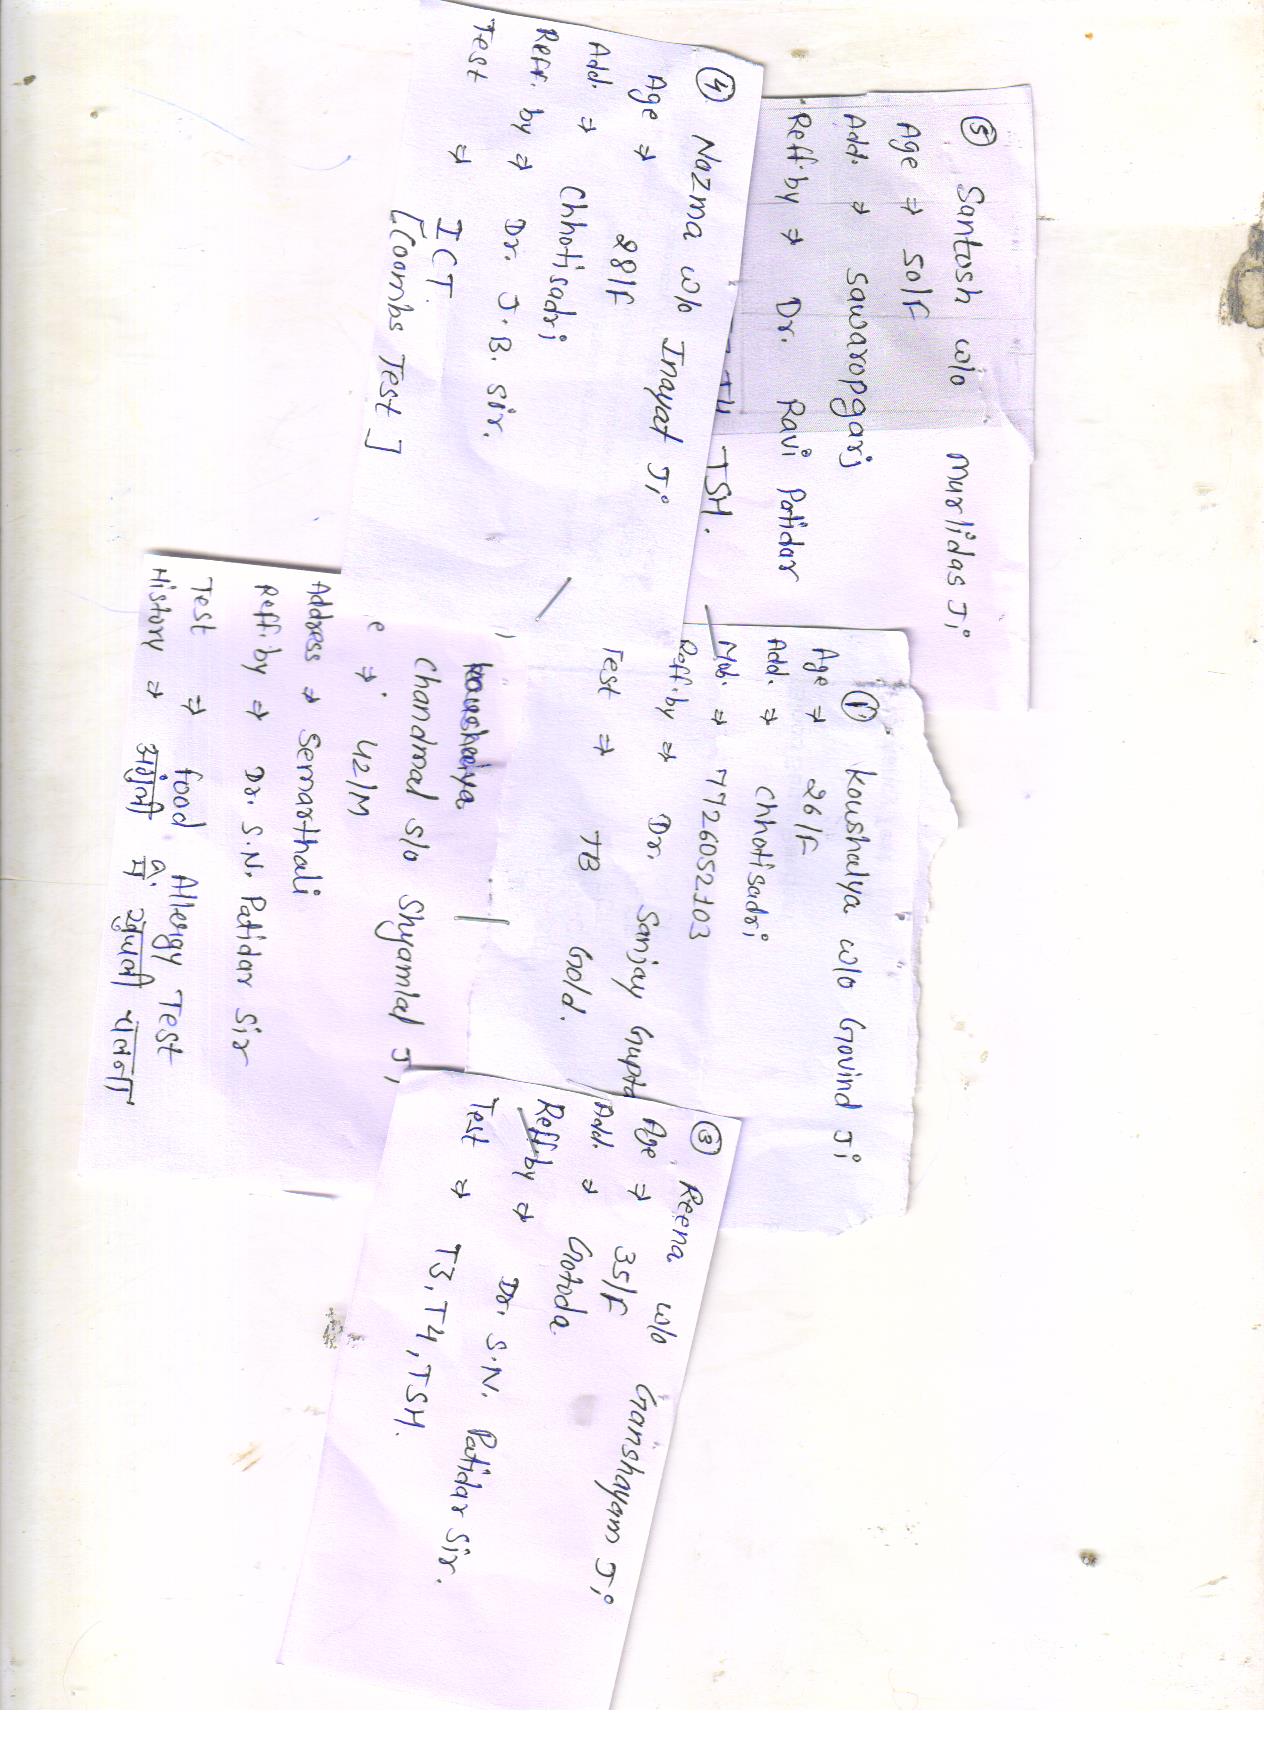 ① Koushalya w/o Govind Ji
Age ⇒ 26/F
Add. ⇒ Chhotisadri
Mob. ⇒ 7726052103
Reff.by ⇒ Dr. Sanjay Gupta
Test ⇒ TB Gold.
Koushalya
Chandmal s/o Shyamlal Ji
e ⇒ 42/M
Address ⇒ Semarthali
Reff.by ⇒ Dr. S.N. Patidar Sir
Test ⇒ food Allergy Test
History ⇒ में खुजली चलना
③ Reena w/o Ganshayam Ji
Age ⇒ 35/F
Add. ⇒ Gotoda
Reff.by ⇒ Dr. S.N. Patidar Sir.
Test ⇒ T3, T4, TSH.
④ Nazma w/o Inayat Ji
Age ⇒ 28/F
Add. ⇒ Chhotisadri
Reff. by ⇒ Dr. J.B. Sir.
Test ⇒ ICT.
[Coombs Test]
⑤ Santosh w/o Murlidas Ji
Age ⇒ 50/F
Add. ⇒ Sawaropganj
Reff.by ⇒ Dr. Ravi Patidar
TSH.